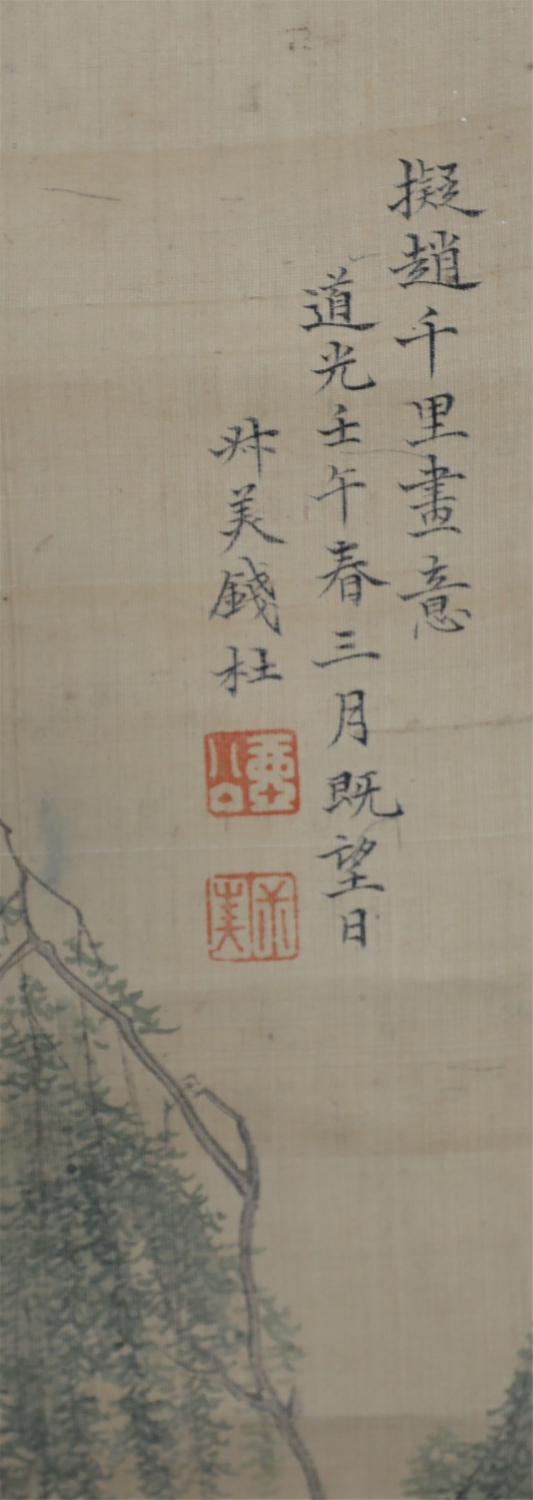 擬趙千里畫意
道光壬午春三月既望日
叔美錢杜